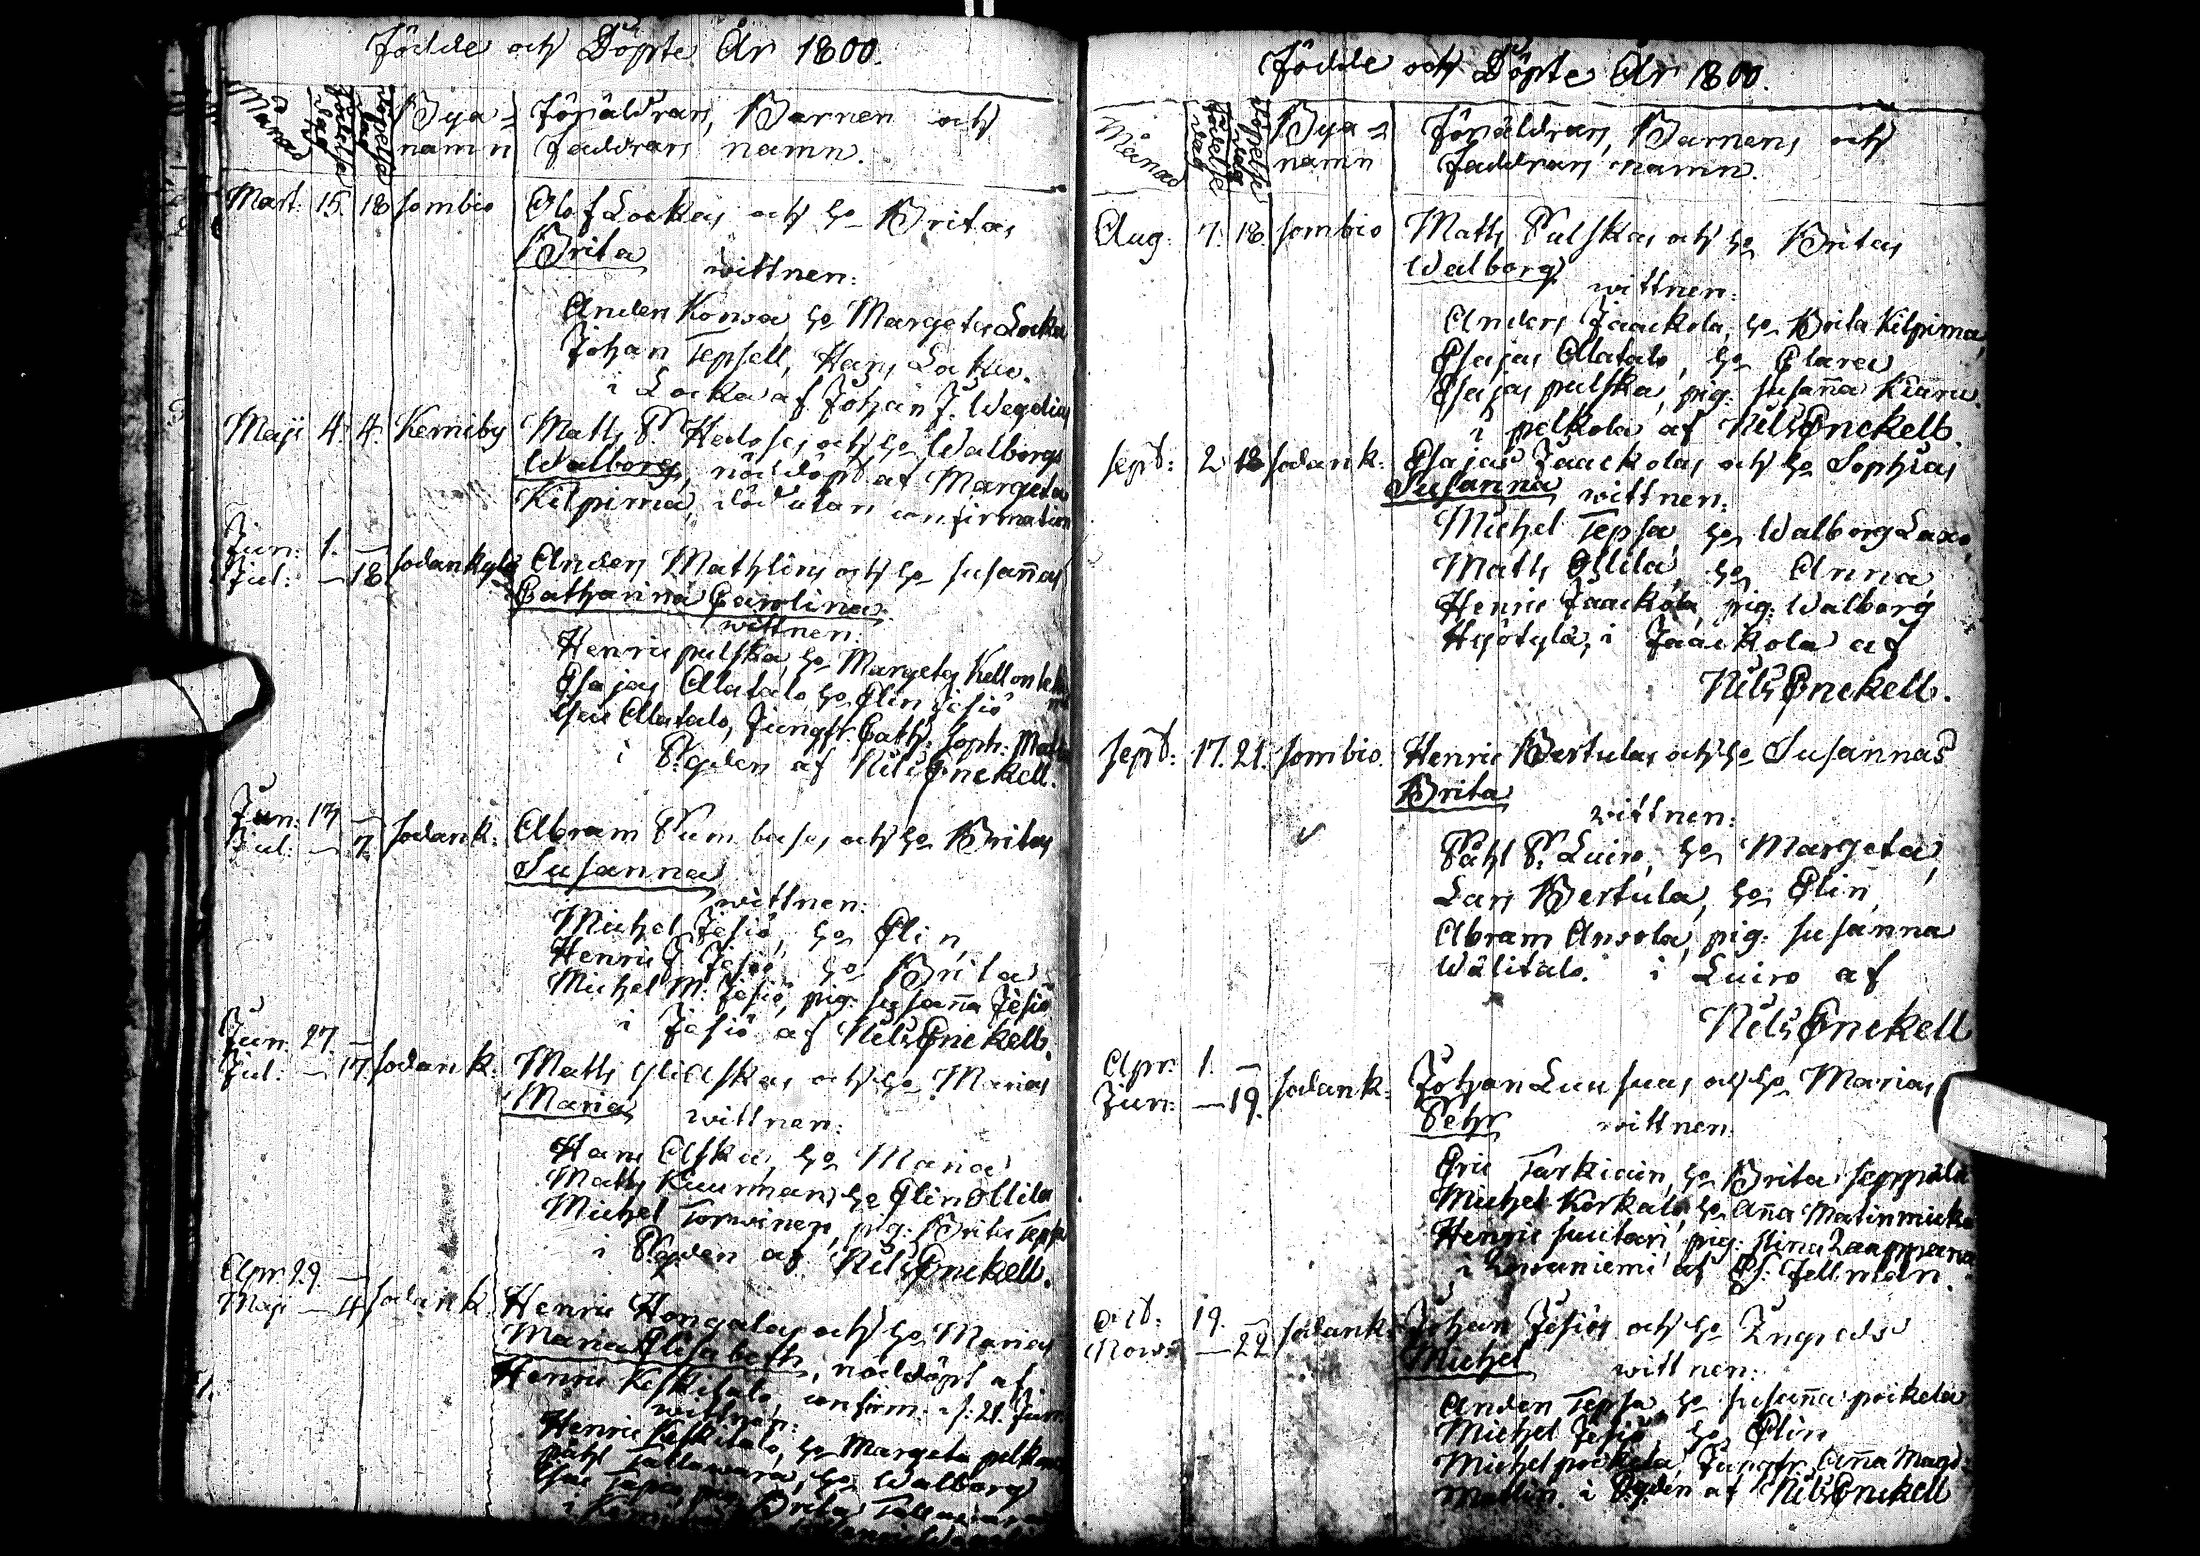 Födde och Döpte År 1800.
Månad Födelse dag Döpelse dag Bya= namn Föräldrars, Barnens och
Faddrars namn.
Mart. 15. 18 Sombio Olof Lockas och ho Britas
Brita wittnen:
Anders Konsa ho Margeta Locka
Johan Tepsell, Hans Locka.
i Locka af Johan J. Wegelius
Maji 4. 4. Kemiby Matts P. Kedos, och ho Walborgs
Walborg, nöddöpt af Margeta
Kilpirma, död utan confirmation
Jun: 1. —
Jul: — 18. Sodankylä Anders Mathlins och ho Susan̄as
Catharina Carolina.
wittnen:
Henric pulska, ho Margeta
Esajas Alatalo, ho Elin Jesiö
Alatalo, Jungfr. Cath: Soph:
i Pgden af Nils Enckell.
Jun: 13 —
Jul: — 7. Sodank: Abram Pumbasas, och ho Britas
Susanna
wittnen:
Michel Jesiö, ho Elin,
Henric J. Jesiö, ho Brita
Michel M. Jesiö, pig: Susan̄a Jesiö
i Jesiö af Nils Enckell.
Jun. 27. —
Jul: — 17. Sodank: Matts Askas och ho Marias
Maria wittnen:
Hans Aska, ho Maria
Matts Kuurman, ho Elin Ollila
Michel Torwinen, pig: Brita Tepsa
i Pgden af Nils Enckell.
Apr. 29. —
Maji — 4 Sodank. Henric Hongalas och ho Marias
Maria Elisabeth, nöddöpt af
Henric Keskitalo, confirm: d: 21. Jun.
wittnen:
Henric Keskitalo, ho Margeta
påhl Tallawara, ho Walborg
Brita Tallawara
Födde och Döpte År 1800.
Månad Födelse dag Döpelse dag Bya= namn Föräldrars, Barnens och
Faddrars namn.
Aug: 7. 18 Sombio Matts Pulskas och ho Britas
Walborg wittnen:
Anders Jaackola, ho Brita Kilpirma,
Esajas Alatalo, ho Clara
Esajas pulska, pig: Susan̄a Kiaru.
i pelkola af Nils Enckell.
Sept: 2 18 Sodank: Esajas Jaackolas och ho Sophias
Susanna wittnen:
Michel Tepsa, ho Walborg Laxo,
Matts Ollila, ho Anna
Henric Jaackola, pig: Walborg
Hyötylä, i Jaackola af
Nils Enckell.
Sept: 17. 21. Sombio. Henric Bertulas och ho Susannas
Brita
wittnen:
Påhl P. Luiro, ho Margeta,
Lars Bertula, ho Elin,
Abram Ansola, pig: Susanna
Wälitalo. i Luiro af
Nils Enckell
Apr: 1. —
Jun: — 19. Sodank: Johan Luusuas och ho Marias
Pehr wittnen
Eric Tarkiain, ho Brita Seppälä
Michel Korkalo, ho An̄a Matinmicko
Henric Suutari, pig: Stina Laapmana
i Rowaniemi af Es: Fellman.
Oct: 19. —
Now: — 22 Sodank: Johan Jesiös och ho Ingreds
Michel wittnen:
Anders Tepsa, ho Susan̄a pöckelä
Michel Jesiö ho Elin
Michel pöckelä, Jungfr. An̄a Magd:
Mollin. i Pgden af Nils Enckell